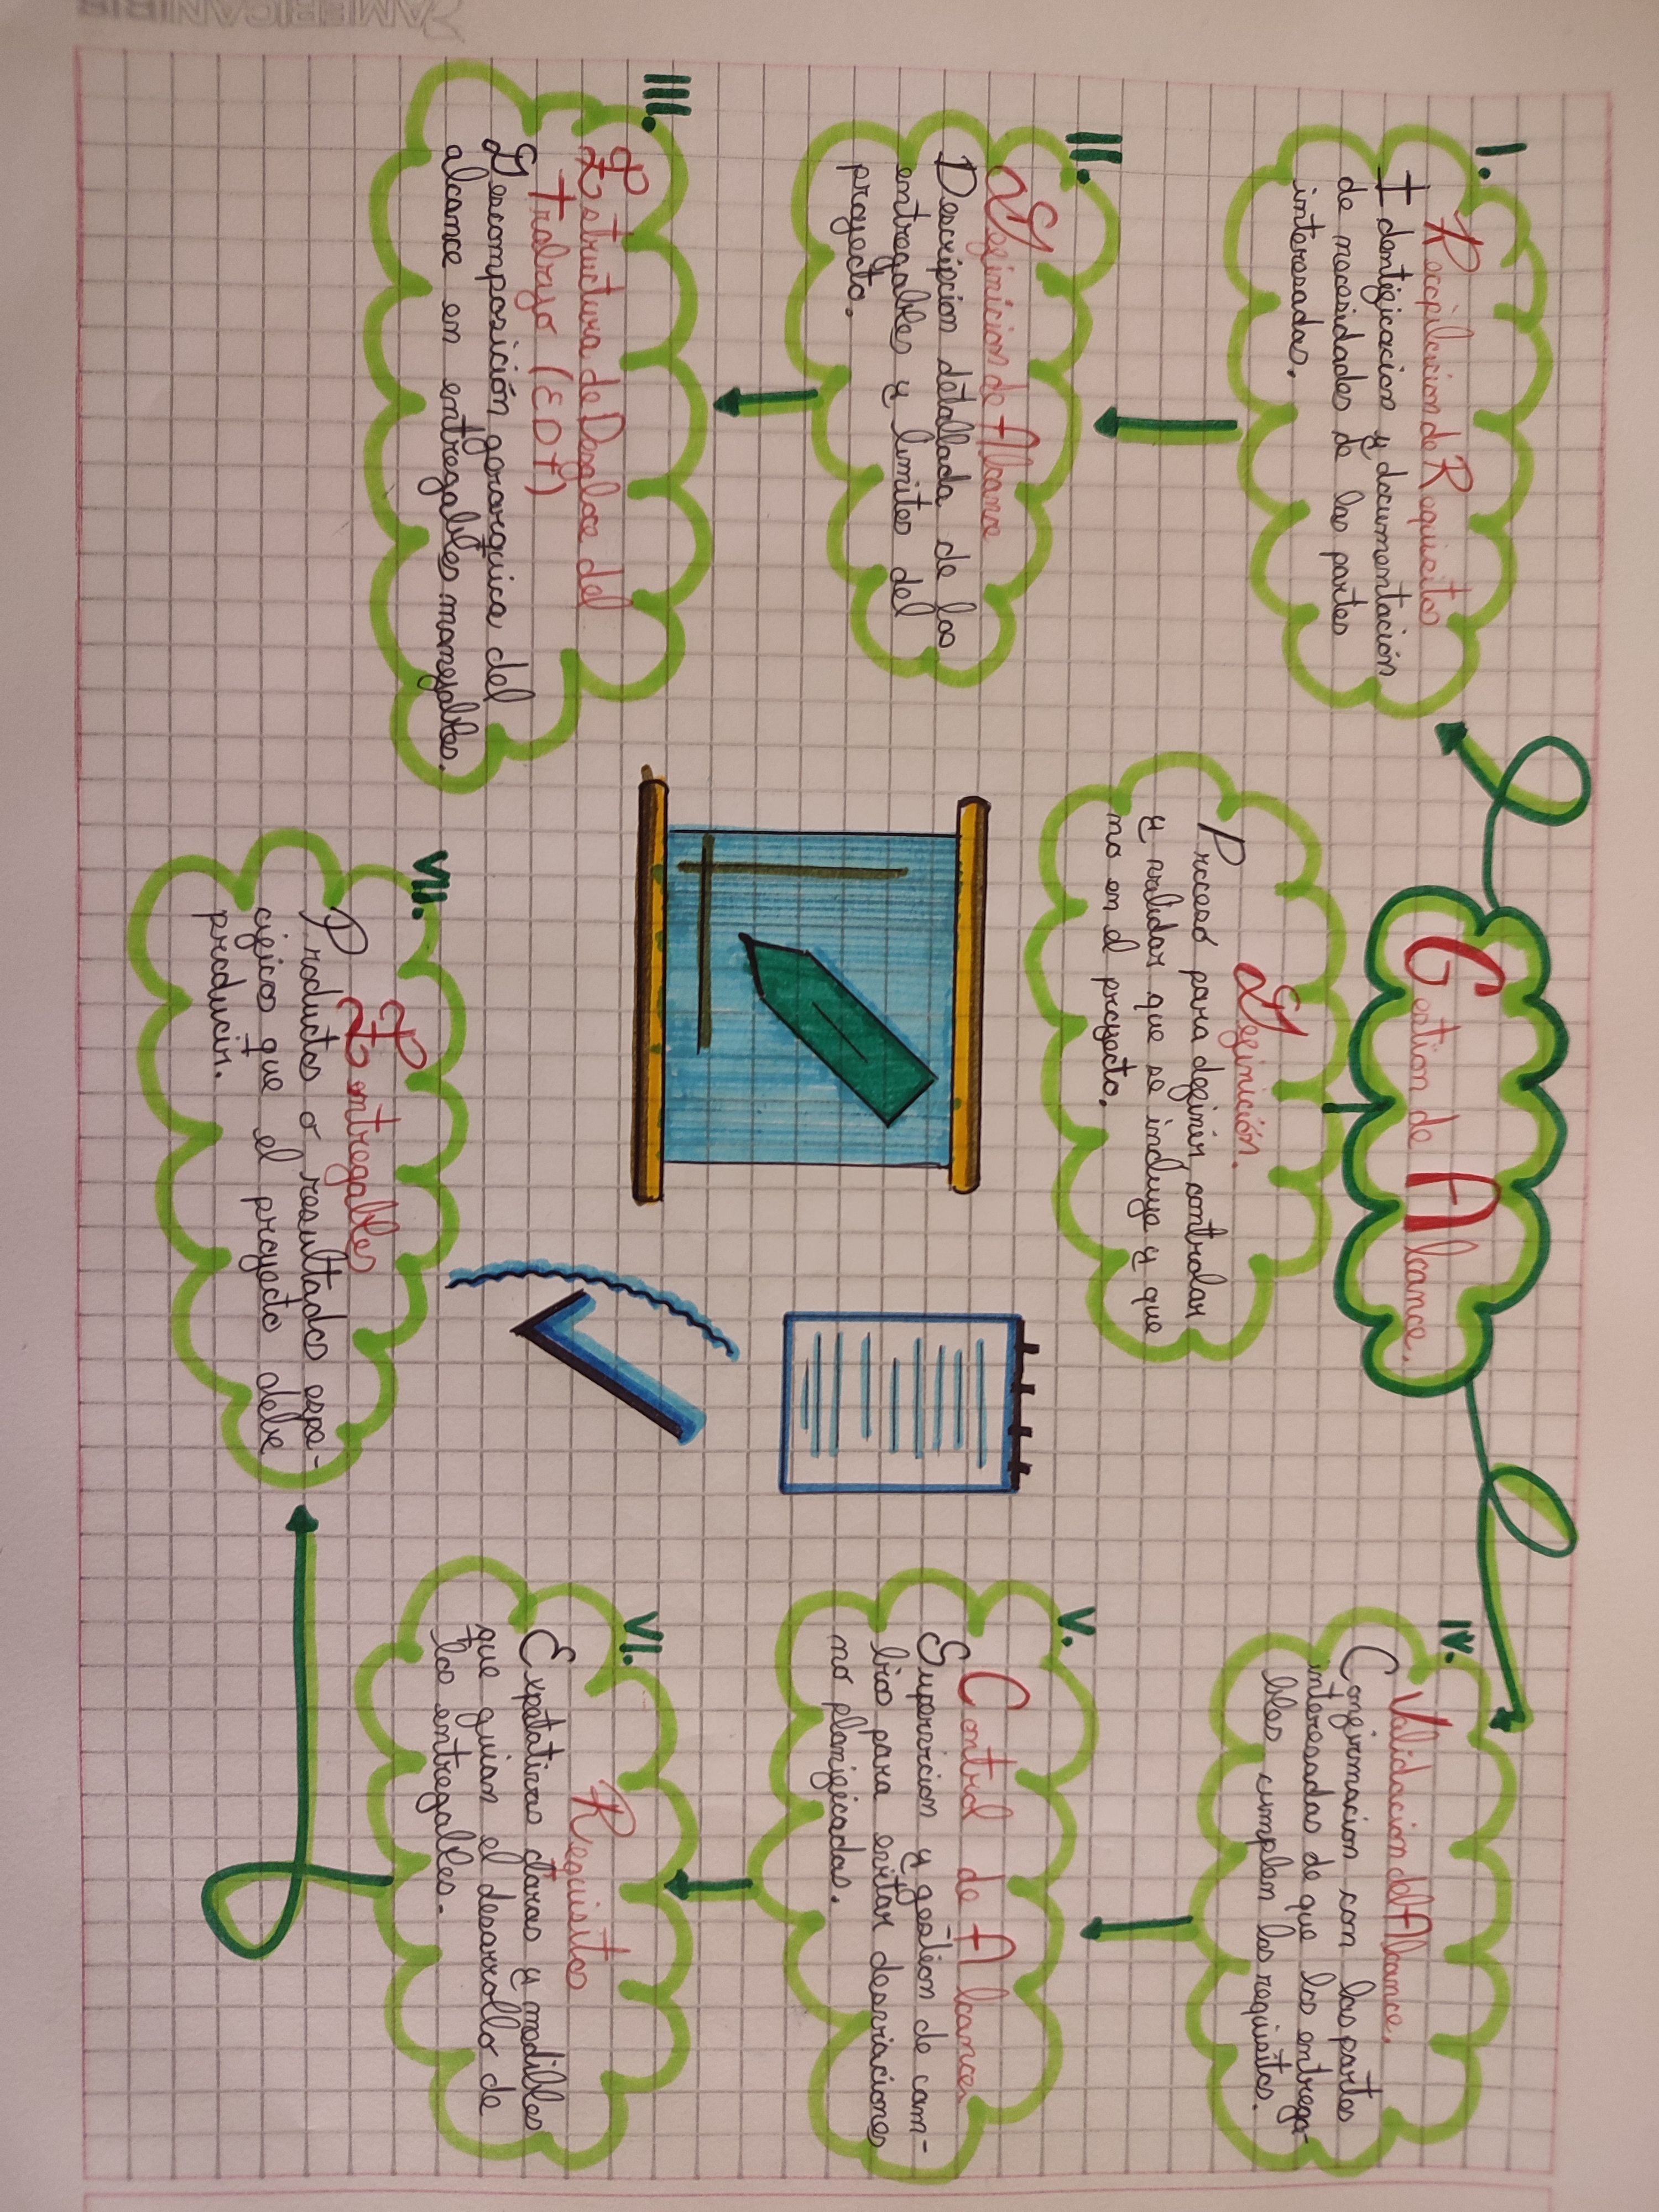 Gestion de Alcance.
Definición.
Proceso para definir, controlar
y validar que se incluye y que
no en el proyecto.
I.
Recopilacion de Requisitos
Identificacion y documentación
de necesidades de las partes
interesadas.
II.
Definicion de Alcance
Descripcion detallada de los
entregables y limites del
proyecto.
III.
Estructura de Desgloce del
Trabajo (EDT)
Descomposición gerarquica del
alcance en entregables manejables.
IV.
Validación del Alcance.
Confirmacion con las partes
interesadas de que los entrega-
bles cumplen los requisitos.
V.
Control de Alcance.
Supervicion y gestion de cam-
bios para evitar desviaciones
no planificadas.
VI.
Requisitos
Expetativas claras y medibles
que guian el desarrollo de
los entregables.
VII.
Entregables
Productos o resultados espe-
cificos que el proyecto debe
producir.